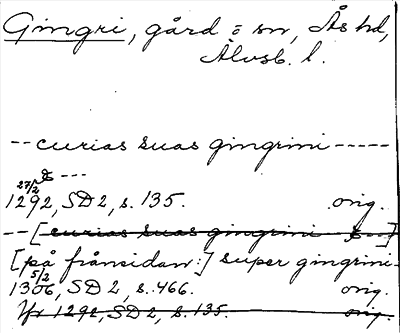 Gingri, gård o sn, Ås hd,
Älvsb. l.
-- curias suas gingrini -----
& ---
27/2
1292, SD 2, s. 135. orig.
-- [curias suas gingrini & --]
[på frånsidan:] super gingrini-
5/2
1306, SD 2, s. 466. orig.
Yr 1292, SD 2, s. 135. orig.